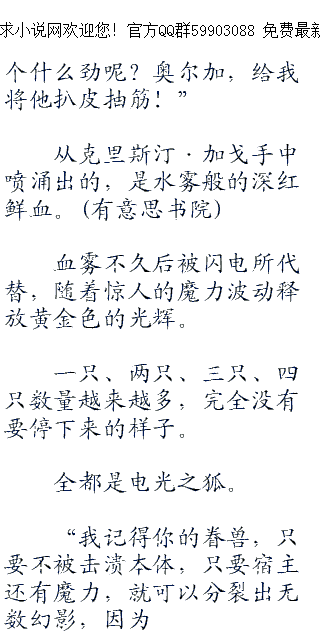 求小说网欢迎您！官方QQ群59903088 免费最新
个什么劲呢？奥尔加，给我
将他扒皮抽筋！”
从克里斯汀·加戈手中
喷涌出的，是水雾般的深红
鲜血。(有意思书院)
血雾不久后被闪电所代
替，随着惊人的魔力波动释
放黄金色的光辉。
一只、两只、三只、四
只数量越来越多，完全没有
要停下来的样子。
全都是电光之狐。
“我记得你的眷兽，只
要不被击溃本体，只要宿主
还有魔力，就可以分裂出无
数幻影，因为